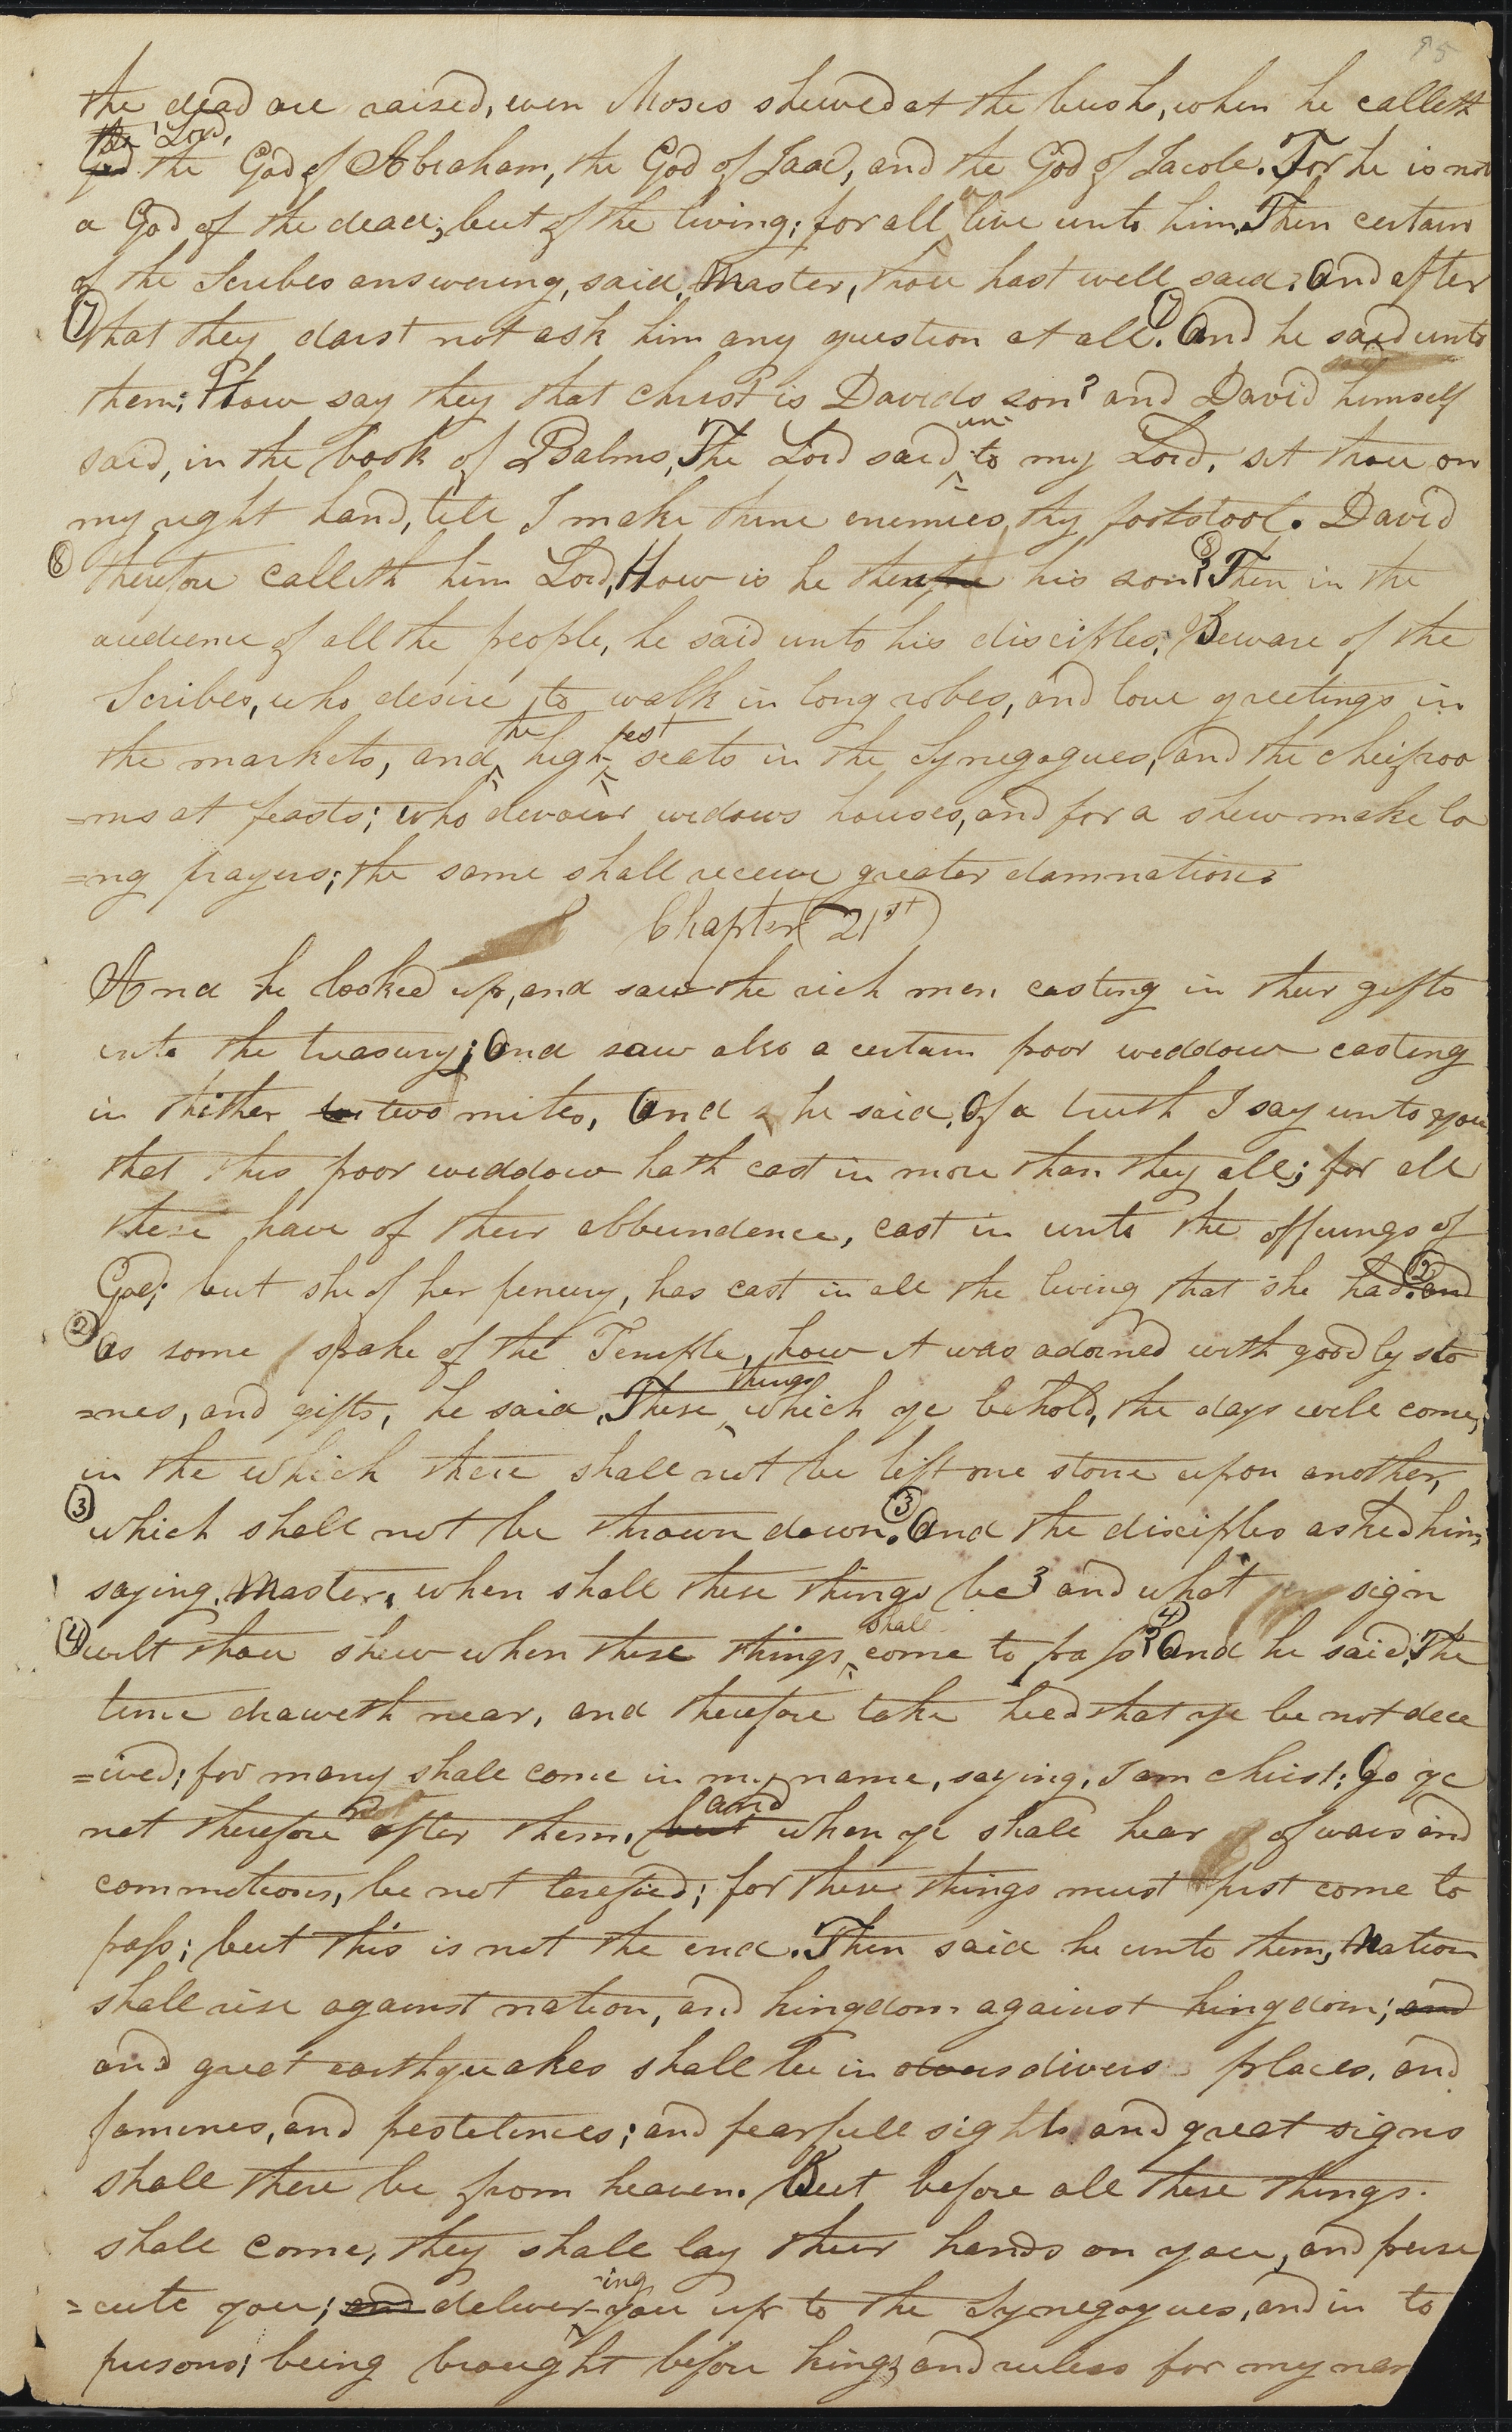 95
the dead are raised, even Moses shewed at the bush, when he calleth
the Lord,
God the God of Abraham, the God of Isaac, and the God of Jacob. For he is not
a God of the dead; but of the living; for all live unto him. Then certain
of the Scribes answering, said, Master, thou hast well said. And after
(7) that they darst not ask him any question at all. (7) And he said unto
them; How say they that christ is Davids son? and David himself
un-
said, in the book of Psalms, The Lord said to my Lord, sit thou on
my right hand, till I make thine enemies thy footstool. David
(8) therefore calleth him Lord, How is he therefore his son? (8) Then in the
audience of all the people, he said unto his disciples; Beware of the
Scribes, who desire to walk in long robes, and love greetings in
the est
the markets, and high seats in the Synegogues, and the cheifroo
=ms at feasts; who devour widows houses, and for a shew make lo
=ng prayers; the same shall receive greater damnation.
Chapter 21st
And he looked up, and saw the rich men casting in their gifts
into the treasury; And saw also a certain poor weddow casting
in thither two mites, And he said, Of a truth I say unto you
that this poor weddow hath cast in more than they all; for all
these have of their abbundence, cast in unto the offerings of
God; but she of her penury, has cast in all the living that she had. (2) and
(2) As some spake of the Temple, how it was adorned with goodly sto
things
=nes, and gifts, he said, These which ye behold, the days will come,
in the which there shall not be left one stone upon another,
(3) which shall not be thrown down. (3) And the disciples asked him,
saying, Master, when shall these things be? and what sign
shall
(4) wilt thou shew when these things come to pass? (4) And he said, The
time draweth near, and therefore take heed that ye be not dece
=ived; for many shall come in my name, saying, I am christ; Go ye
and
not therefore after them. but when ye shall hear of wars and
commotions, be not terefied; for these things must first come to
pass; but this is not the end. Then said he unto them, Nation
shall rise against nation, and kingdom against kingdom; and
and great earthquakes shall be in divers divers places, and
famines, and pestelences; and fearfull sights and great signs
shall there be from heaven. But before all these things
shall come, they shall lay their hands on you, and perse
-ing
=cute you; and deliver you up to the Synegogues, and in to
prisons; being brought before kings and rulers for my nam